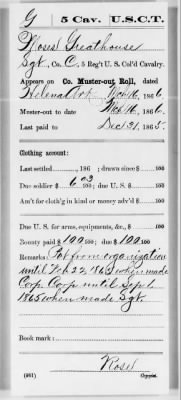 G 5 Cav. U.S.C.T.
Moses Greathouse
Sgt, Co. C, 5 Reg't U. S. Col'd Cavalry.
Appears on Co. Muster-out Roll, dated
Helena Ark Mch 16, 1866.
Muster-out to date Mch 16, 1866.
Last paid to Dec 31, 1865.
Clothing account:
Last settled 186 ; drawn since $ 100
Due soldier $ 6 03 100; due U. S. $ 100
Am't for cloth'g in kind or money adv'd $ 100
Due U. S. for arms, equipments, &c., $ 100
Bounty paid $ 100 100; due $ 100 100
Remarks: Pvt from organization
until Feb 22, 1865 when made
Corp. Corp until Sept 1
1865 when made Sgt.
Book mark:
(861) Copyist.